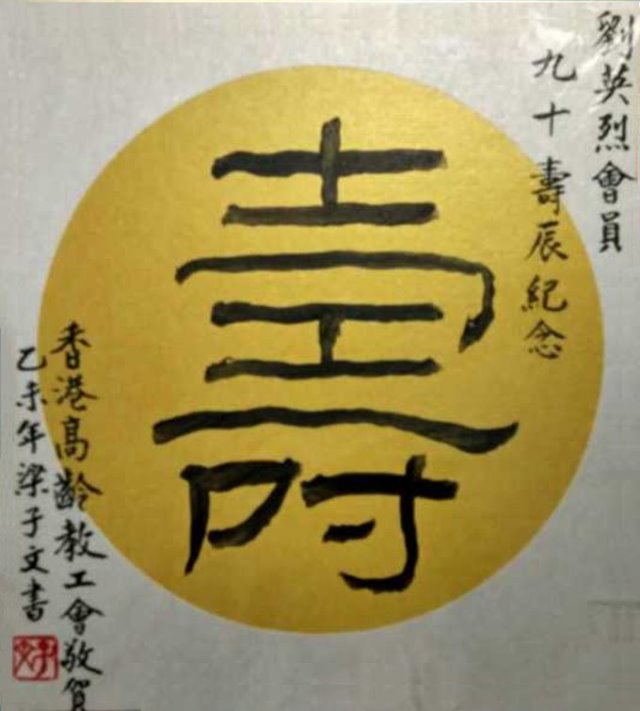 劉英烈會員
九十壽辰紀念
壽
香港高齡教工會敬賀
乙未年梁子文書